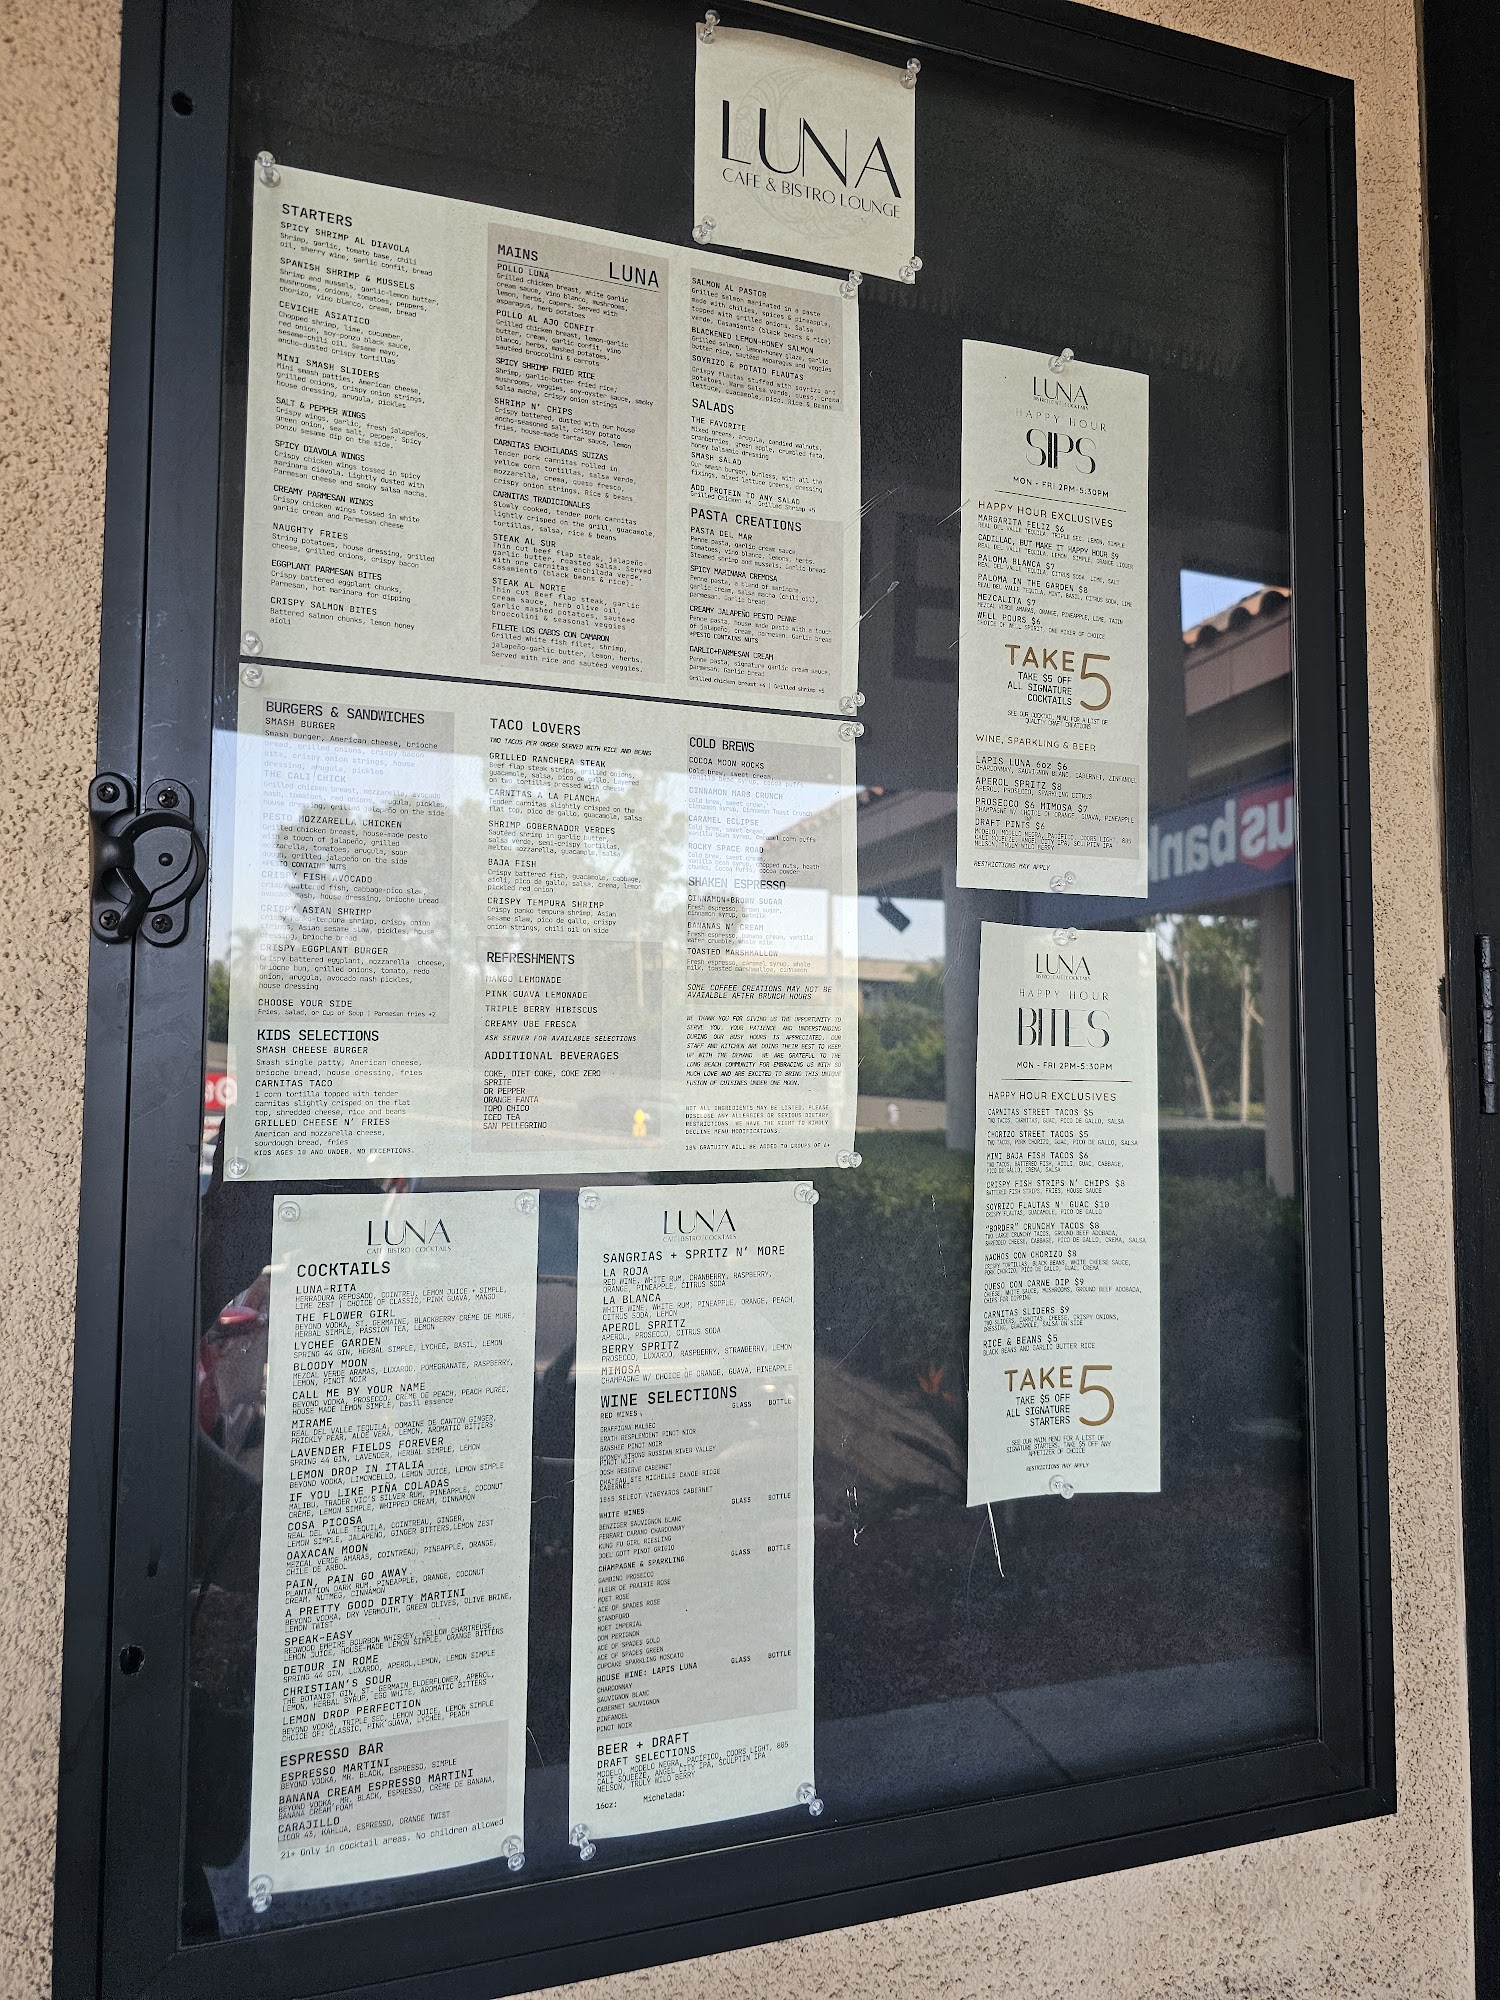 LUNA
CAFE & BISTRO LOUNGE
STARTERS
SPICY SHRIMP AL DIAVOLA
Shrimp, garlic, tomato base, chili
oil, sherry wine, garlic confit, bread
SPANISH SHRIMP & MUSSELS
Shrimp and mussels, garlic-lemon butter,
mushrooms, onions, tomatoes, peppers,
chorizo, vino blanco, cream, bread
CEVICHE ASIATICO
Chopped shrimp, lime, cucumber,
red onion, soy-ponzu black sauce,
sesame-chili oil. Sesame mayo,
ancho-dusted crispy tortillas
MINI SMASH SLIDERS
Mini smash patties, American cheese,
grilled onions, crispy onion strings,
house dressing, arugula, pickles
SALT & PEPPER WINGS
Crispy wings, garlic, fresh jalapeños,
Green onion, sea salt, pepper. Spicy
ponzu sesame dip on the side.
SPICY DIAVOLA WINGS
Crispy chicken wings tossed in spicy
marinara diavola. Lightly dusted with
Parmesan cheese and smoky salsa macha.
CREAMY PARMESAN WINGS
Crispy chicken wings tossed in white
garlic cream and Parmesan cheese
NAUGHTY FRIES
String potatoes, house dressing, grilled
cheese, grilled onions, crispy bacon
EGGPLANT PARMESAN BITES
Crispy battered eggplant chunks,
Parmesan, hot marinara for dipping
CRISPY SALMON BITES
Battered salmon chunks, lemon honey
aioli
MAINS
LUNA
POLLO LUNA
Grilled chicken breast, white garlic
cream sauce, vino blanco, mushrooms,
lemon, herbs, capers. Served with
asparagus, herb potatoes
POLLO AL AJO CONFIT
Grilled chicken breast, lemon-garlic
butter, cream, garlic confit, vino
blanco, herbs, mashed potatoes,
sautéed broccolini & carrots
SPICY SHRIMP FRIED RICE
Shrimp, garlic-butter fried rice,
mushrooms, veggies, soy-oyster sauce, smoky
salsa macha, crispy onion strings
SHRIMP N' CHIPS
Crispy battered, dusted with our house
ancho-seasoned salt, crispy potato
fries, house-made tartar sauce, lemon
CARNITAS ENCHILADAS SUIZAS
Tender pork carnitas rolled in
yellow corn tortillas, salsa verde,
mozzarella, crema, queso fresco,
crispy onion strings. Rice & beans
CARNITAS TRADICIONALES
Slowly cooked, tender pork carnitas
lightly crisped on the grill, guacamole,
tortillas, salsa, rice & beans
STEAK AL SUR
Thin cut beef flap steak, jalapeño-
garlic butter, roasted salsa. Served
with one carnitas enchilada verde,
casamiento (black beans & rice).
STEAK AL NORTE
Thin cut Beef flap steak, garlic
cream sauce, herb olive oil,
garlic mashed potatoes, sautéed
broccolini & seasonal veggies
FILETE LOS CABOS CON CAMARON
Grilled white fish filet, shrimp,
jalapeño-garlic butter, lemon, herbs.
Served with rice and sautéed veggies.
SALMON AL PASTOR
Grilled salmon marinated in a paste
made with chilies, spices & pineapple,
topped with grilled onions. Salsa
verde. Casamiento (black beans & rice)
BLACKENED LEMON-HONEY SALMON
Grilled salmon, lemon-honey glaze, garlic
butter rice, sautéed asparagus and veggies
SOYRIZO & POTATO FLAUTAS
Crispy flautas stuffed with soyrizo and
potatoes. Warm Salsa verde, queso, crema
lettuce, guacamole, pico. Rice & Beans
SALADS
THE FAVORITE
Mixed greens, arugula, candied walnuts,
cranberries, green apple, crumbled feta,
honey balsamic dressing
SMASH SALAD
Our smash burger, bunless, with all the
fixings, mixed lettuce greens, dressing
ADD PROTEIN TO ANY SALAD
Grilled Chicken +4 Grilled Shrimp +5
PASTA CREATIONS
PASTA DEL MAR
Penne pasta, garlic cream sauce
tomatoes, vino blanco, lemons, herbs
Steamed shrimp and mussels. Garlic bread
SPICY MARINARA CREMOSA
Penne pasta, a blend of marinara,
garlic cream, salsa macha (chili oil),
parmesan, garlic bread
CREAMY JALAPEÑO PESTO PENNE
Penne pasta, house made pesto with a touch
of jalapeño, cream, parmesan. Garlic bread
*PESTO CONTAINS NUTS
GARLIC+PARMESAN CREAM
Penne pasta, signature garlic cream sauce,
parmesan. Garlic bread
Grilled chicken breast +4 | Grilled shrimp +5
BURGERS & SANDWICHES
SMASH BURGER
Smash burger, American cheese, brioche
bread, grilled onions, crispy bacon
bits, crispy onion strings, house
dressing, arugula, pickles
THE CALI CHICK
Grilled chicken breast, mozzarella, avocado
mash, tomatoes, red onions, arugula, pickles,
house dressing, grilled jalapeño on the side
PESTO MOZZARELLA CHICKEN
Grilled chicken breast, house-made pesto
with a touch of jalapeño, grilled
mozzarella, tomatoes, arugula, sour
dough, grilled jalapeño on the side
*PESTO CONTAINS NUTS
CRISPY FISH AVOCADO
Crispy battered fish, cabbage-pico slaw,
avocado mash, house dressing, brioche bread
CRISPY ASIAN SHRIMP
Crispy panko-tempura shrimp, crispy onion
strings, Asian sesame slaw, pickles, house
dressing, brioche bread
CRISPY EGGPLANT BURGER
Crispy battered eggplant, mozzarella cheese,
brioche bun, grilled onions, tomato, redo
onion, arugula, avocado mash pickles,
house dressing
CHOOSE YOUR SIDE
Fries, Salad, or Cup of Soup | Parmesan fries +2
KIDS SELECTIONS
SMASH CHEESE BURGER
Smash single patty, American cheese,
brioche bread, house dressing, fries
CARNITAS TACO
1 corn tortilla topped with tender
carnitas slightly crisped on the flat
top, shredded cheese, rice and beans
GRILLED CHEESE N' FRIES
American and mozzarella cheese,
sourdough bread, fries
KIDS AGES 10 AND UNDER. NO EXCEPTIONS.
TACO LOVERS
TWO TACOS PER ORDER SERVED WITH RICE AND BEANS
GRILLED RANCHERA STEAK
Beef flap steak strips, grilled onions,
guacamole, salsa, pico de gallo. Layered
on two tortillas pressed with cheese
CARNITAS A LA PLANCHA
Tender carnitas slightly crisped on the
flat top, pico de gallo, guacamole, salsa
SHRIMP GOBERNADOR VERDES
Sautéed shrimp in garlic butter,
salsa verde, semi-crispy tortillas,
melted mozzarella, guacamole, salsa
BAJA FISH
Crispy battered fish, guacamole, cabbage,
aioli, pico de gallo, salsa, crema, lemon
pickled red onion
CRISPY TEMPURA SHRIMP
Crispy panko tempura shrimp, Asian
sesame slaw, pico de gallo, crispy
onion strings, chili oil on side
REFRESHMENTS
MANGO LEMONADE
PINK GUAVA LEMONADE
TRIPLE BERRY HIBISCUS
CREAMY UBE FRESCA
ASK SERVER FOR AVAILABLE SELECTIONS
ADDITIONAL BEVERAGES
COKE, DIET COKE, COKE ZERO
SPRITE
DR PEPPER
ORANGE FANTA
TOPO CHICO
ICED TEA
SAN PELLEGRINO
COLD BREWS
COCOA MOON ROCKS
Cold brew, sweet cream,
CINNAMON MARS CRUNCH
cold brew, sweet cream,
cinnamon syrup, Cinnamon Toast Crunch
CARAMEL ECLIPSE
Cold brew, sweet cream,
vanilla bean syrup, caramel corn puffs
ROCKY SPACE ROAD
Cold brew, sweet cream,
vanilla bean syrup, chopped nuts, heath
chunks, cocoa Puffs, cocoa powder
SHAKEN ESPRESSO
CINNAMON+BROWN SUGAR
Fresh espresso, brown sugar,
cinnamon syrup, oatmilk
BANANAS N' CREAM
Fresh espresso, banana cream, vanilla
wafer crumble, whole milk
TOASTED MARSHMALLOW
Fresh espresso, caramel syrup, whole
milk, toasted marshmallow, cinnamon
SOME COFFEE CREATIONS MAY NOT BE
AVAIALBLE AFTER BRUNCH HOURS
WE THANK YOU FOR GIVING US THE OPPORTUNITY TO
SERVE YOU. YOUR PATIENCE AND UNDERSTANDING
DURING OUR BUSY HOURS IS APPRECIATED. OUR
STAFF AND KITCHEN ARE DOING THEIR BEST TO KEEP
UP WITH THE DEMAND. WE ARE GRATEFUL TO THE
LONG BEACH COMMUNITY FOR EMBRACING US WITH SO
MUCH LOVE AND ARE EXCITED TO BRING THIS UNIQUE
FUSION OF CUISINES UNDER ONE MOON.
NOT ALL INGREDIENTS MAY BE LISTED. PLEASE
DISCLOSE ANY ALLERGIES OR SERIOUS DIETARY
RESTRICTIONS. WE HAVE THE RIGHT TO KINDLY
DECLINE MENU MODIFICATIONS.
18% GRATUITY WILL BE ADDED TO GROUPS OF 6+
LUNA
CAFE BISTRO COCKTAILS
COCKTAILS
LUNA-RITA
HERRADURA REPOSADO, COINTREU, LEMON JUICE + SIMPLE,
LIME ZEST | CHOICE OF CLASSIC, PINK GUAVA, MANGO
THE FLOWER GIRL
BEYOND VODKA, ST. GERMAINE, BLACKBERRY CRÈME DE MURE,
HERBAL SIMPLE, PASSION TEA, LEMON
LYCHEE GARDEN
SPRING 44 GIN, HERBAL SIMPLE, LYCHEE, BASIL, LEMON
BLOODY MOON
MEZCAL VERDE ARAMAS, LUXARDO, POMEGRANATE, RASPBERRY,
LEMON, PINOT NOIR
CALL ME BY YOUR NAME
BEYOND VODKA, PROSECCO, CRÈME DE PEACH, PEACH PURÉE,
HOUSE MADE LEMON SIMPLE, basil essence
MIRAME
REAL DEL VALLE TEQUILA, DOMAINE DE CANTON GINGER,
PRICKLY PEAR, ALOE VERA, LEMON, AROMATIC BITTERS
LAVENDER FIELDS FOREVER
SPRING 44 GIN, LAVENDER, HERBAL SIMPLE, LEMON
LEMON DROP IN ITALIA
BEYOND VOCKA, LIMONCELLO, LEMON JUICE, LEMON SIMPLE
IF YOU LIKE PIÑA COLADAS
MALIBU, TRADER VIC'S SILVER RUM, PINEAPPLE, COCONUT
CRÈME, LEMON SIMPLE, WHIPPED CREAM, CINNAMON
COSA PICOSA
REAL DEL VALLE TEQUILA, COINTREAU, GINGER,
LEMON SIMPLE, JALAPEÑO, GINGER BITTERS,LEMON ZEST
OAXACAN MOON
MEZCAL VERDE AMARAS, COINTREAU, PINEAPPLE, ORANGE,
CHILE DE ARBOL
PAIN, PAIN GO AWAY
PLANTATION DARK RUM, PINEAPPLE, ORANGE, COCONUT
CREAM, NUTMEG, CINNAMON
A PRETTY GOOD DIRTY MARTINI
BEYOND VODKA, DRY VERMOUTH, GREEN OLIVES, OLIVE BRINE,
LEMON TWIST
SPEAK-EASY
REDWOOD EMPIRE BOURBON WHISKEY, YELLOW CHARTREUSE,
LEMON JUICE, HOUSE-MADE LEMON SIMPLE, ORANGE BITTERS
DETOUR IN ROME
SPRING 44 GIN, LUXARDO, APEROL,LEMON, LEMON SIMPLE
CHRISTIAN'S SOUR
THE BOTANIST GIN, ST. GERMAIN ELDERFLOWER, APEROL,
LEMON, HERBAL SYRUP, EGG WHITE, AROMATIC BITTERS
LEMON DROP PERFECTION
BEYOND VODKA, TRIPLE SEC, LEMON JUICE, LEMON SIMPLE
CHOICE OF: CLASSIC, PINK GUAVA, LYCHEE, PEACH
ESPRESSO BAR
ESPRESSO MARTINI
BEYOND VODKA, MR. BLACK, ESPRESSO, SIMPLE
BANANA CREAM ESPRESSO MARTINI
BEYOND VODKA, MR. BLACK, ESPRESSO, CREME DE BANANA,
BANANA CREAM FOAM
CARAJILLO
LICOR 43, KAHLUA, ESPRESSO, ORANGE TWIST
21+ Only in cocktail areas. No children allowed
LUNA
CAFE BISTRO COCKTAILS
SANGRIAS + SPRITZ N' MORE
LA ROJA
RED WINE, WHITE RUM, CRANBERRY, RASPBERRY,
ORANGE, PINEAPPLE, CITRUS SODA
LA BLANCA
WHITE WINE, WHITE RUM, PINEAPPLE, ORANGE, PEACH,
CITRUS SODA, LEMON
APEROL SPRITZ
APEROL, PROSECCO, CITRUS SODA
BERRY SPRITZ
PROSECCO, LUXARDO, RASPBERRY, STRAWBERRY, LEMON
MIMOSA
CHAMPAGNE W/ CHOICE OF ORANGE, GUAVA, PINEAPPLE
WINE SELECTIONS
RED WINES GLASS BOTTLE
GRAFFIGNA MALBEC
ERATH RESPLENDENT PINOT NIOR
BANSHEE PINOT NOIR
RODNEY STRONG RUSSIAN RIVER VALLEY
PINOT NOIR
JOSH RESERVE CABERNET
CHATEAU STE MICHELLE CANOE RIDGE
CABERNET
1865 SELECT VINEYARDS CABERNET
GLASS BOTTLE
WHITE WINES
BENZIGER SAUVIGNON BLANC
FERRARI CARANO CHARDONNAY
KUNG FU GIRL RIESLING
JOEL GOTT PINOT GRIGIO
CHAMPAGNE & SPARKLING GLASS BOTTLE
GAMBINO PROSECCO
FLEUR DE PRAIRIE ROSE
MOET ROSE
ACE OF SPADES ROSE
STANDFORD
MOET IMPERIAL
DOM PERIGNON
ACE OF SPADES GOLD
ACE OF SPADES GREEN
CUPCAKE SPARKLING MOSCATO
HOUSE WINE: LAPIS LUNA GLASS BOTTLE
CHARDONNAY
SAUVIGNON BLANC
CABERNET SAUVIGNON
ZINFANDEL
PINOT NOIR
BEER + DRAFT
DRAFT SELECTIONS
MODELO, MODELO NEGRA, PACIFICO, COORS LIGHT, 805
CALI SQUEEZE, ANGEL CITY IPA, SCULPTIN IPA
NELSON, TRULY WILD BERRY
16oz: Michelada:
LUNA
HAPPY HOUR
SIPS
MON - FRI 2PM-5:30PM
HAPPY HOUR EXCLUSIVES
MARGARITA FELIZ $6
REAL DEL VALLE TEQUILA, TRIPLE SEC, LEMON, SIMPLE
CADILLAC, BUT MAKE IT HAPPY HOUR $9
REAL DEL VALLE TEQUILA, LEMON, SIMPLE, ORANGE LIQUER
PALOMA BLANCA $7
REAL DEL VALLE TEQUILA, CITRUS SODA, LIME, SALT
PALOMA IN THE GARDEN $8
REAL DEL VALLE TEQUILA, MINT, BASIL, CITRUS SODA, LIME
MEZCALITA $7
MEZCAL VERDE AMARAS, ORANGE, PINEAPPLE, LIME, TAJIN
WELL POURS $6
CHOICE OF WELL SPIRIT, ONE MIXER OF CHOICE
TAKE 5
TAKE $5 OFF
ALL SIGNATURE
COCKTAILS
SEE OUR COCKTAIL MENU FOR A LIST OF
QUALITY CRAFT CREATIONS
WINE, SPARKLING & BEER
LAPIS LUNA 6oz $6
CHARDONNAY, SAUVIGNON BLANC, CABERNET, ZINFANDEL
APEROL SPRITZ $8
APEROL, PROSECCO, SPARKLING CITRUS
PROSECCO $6 MIMOSA $7
CHAMPAGNE W/ CHOICE OF ORANGE, GUAVA, PINEAPPLE
DRAFT PINTS $6
MODELO, MODELO NEGRA, PACIFICO, COORS LIGHT, 805
CALI SQUEEZE, ANGEL CITY IPA, SCULPTIN IPA
NELSON, TRULY WILD BERRY
RESTRICTIONS MAY APPLY
us bank
LUNA
HAPPY HOUR
BITES
MON - FRI 2PM-5:30PM
HAPPY HOUR EXCLUSIVES
CARNITAS STREET TACOS $5
TWO TACOS, CARNITAS, GUAC, PICO DE GALLO, SALSA
CHORIZO STREET TACOS $5
TWO TACOS, PORK CHORIZO, GUAC, PICO DE GALLO, SALSA
MINI BAJA FISH TACOS $6
TWO TACOS, BATTERED FISH, AIOLI, GUAC, CABBAGE,
PICO DE GALLO, CREMA, SALSA
CRISPY FISH STRIPS N' CHIPS $8
BATTERED FISH STRIPS, FRIES, HOUSE SAUCE
SOYRIZO FLAUTAS N' GUAC $10
CRISPY FLAUTAS, GUACAMOLE, PICO DE GALLO
"BORDER" CRUNCHY TACOS $8
TWO LARGE CRUNCHY TACOS, GROUND BEEF ADOBADA,
SHREDDED CHEESE, CABBAGE, PICO DE GALLO, CREMA, SALSA
NACHOS CON CHORIZO $8
CRISPY TORTILLAS, BLACK BEANS, WHITE CHEESE SAUCE,
PORK CHORIZO, PICO DE GALLO, GUAC, CREMA
QUESO CON CARNE DIP $9
CHEESE, WHITE SAUCE, MUSHROOMS, GROUND BEEF ADOBADA,
CHIPS FOR DIPPING
CARNITAS SLIDERS $9
TWO SLIDERS, CARNITAS, CHEESE, CRISPY ONIONS,
DRESSING, GUACAMOLE, SALSA ON SIDE
RICE & BEANS $5
BLACK BEANS AND GARLIC BUTTER RICE
TAKE 5
TAKE $5 OFF
ALL SIGNATURE
STARTERS
SEE OUR MAIN MENU FOR A LIST OF
SIGNATURE STARTERS. TAKE $5 OFF ANY
APPETIZER OF CHOICE
RESTRICTIONS MAY APPLY